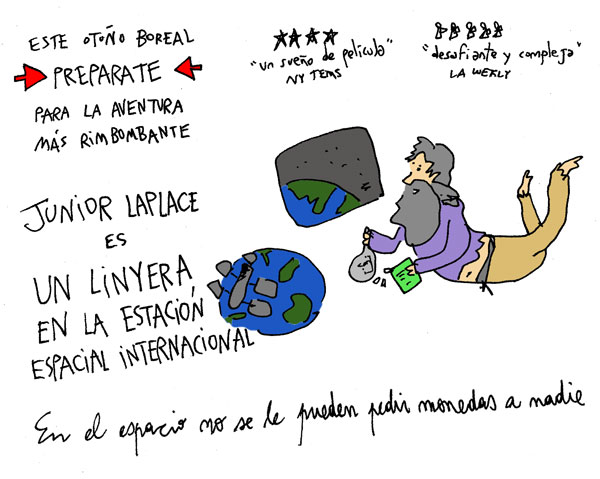 ESTE OTOÑO BOREAL
PREPARATE
PARA LA AVENTURA
MÁS RIMBOMBANTE
"un sueño de película"
NY TEMS
"desafiante y compleja"
LA WEKLY
JUNIOR LAPLACE
ES
UN LINYERA,
EN LA ESTACIÓN
ESPACIAL INTERNACIONAL
En el espacio no se le pueden pedir monedas a nadie